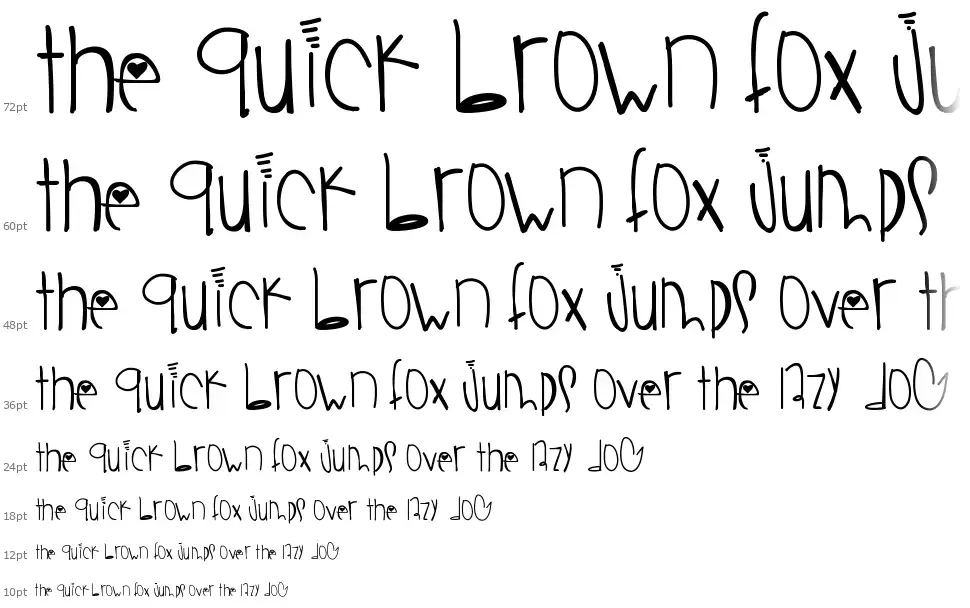 72pt the quick brown fox ju
60pt the quick brown fox jumps
48pt the quick brown fox jumps over th
36pt the quick brown fox jumps over the lazy dog
24pt the quick brown fox jumps over the lazy dog
18pt the quick brown fox jumps over the lazy dog
12pt the quick brown fox jumps over the lazy dog
10pt the quick brown fox jumps over the lazy dog